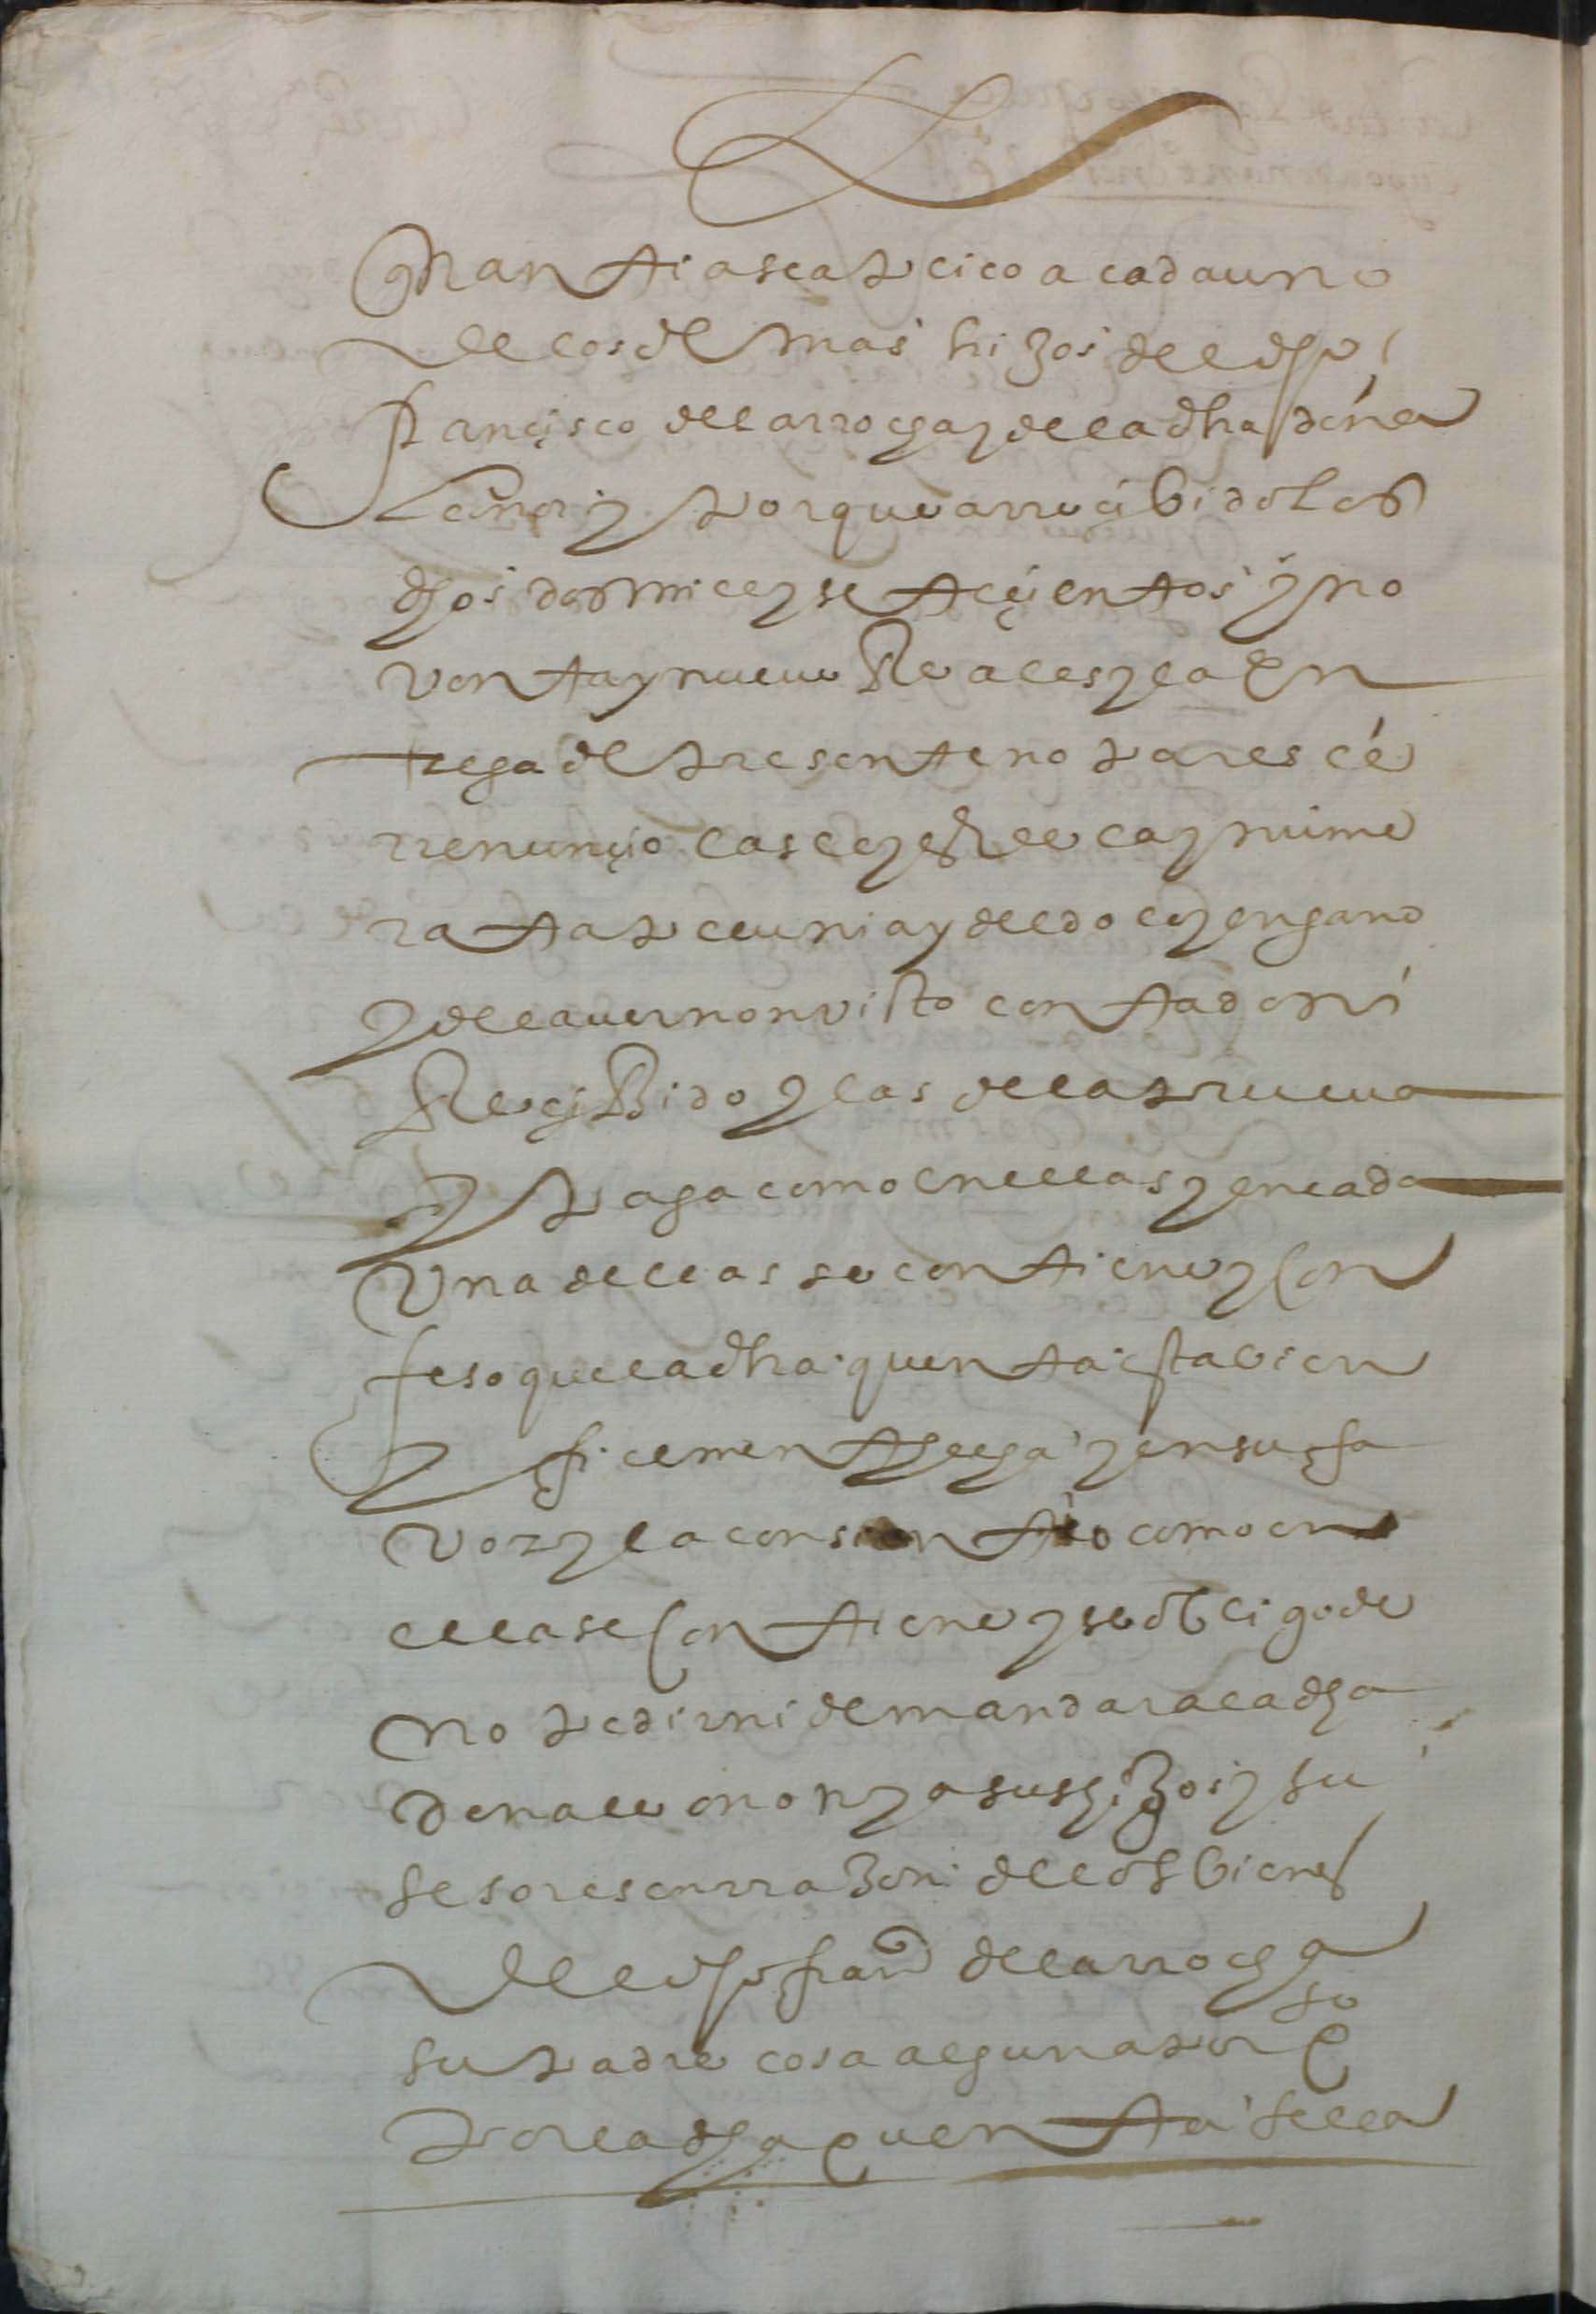 quantia se aplico a cada uno
de los demas hijos del dho
francisco de larrocha y de la dha doña
leonor y porque a rrecibido los
dhos dos mill y setecientos y no
venta y nueve Reales y la en
trega de presente no paresce
rrenuncio las leyes de la ynnume
rata pecunia y del dolo y engano
y del aver non visto contado ni
Recibido y las de la prueva
y paga como en ellas y en cada
una dellas se contiene y con
feso que la dha quenta esta bien
y fielmente hecha y en su fa
vor y la consintio como en
ella se contiene y se obligo de
no pedir ni demandar a la dha
dona leonor y a sus hijos y su
sesores en rrazon de los bienes
del dho franco de larrocha
su padre cosa alguna por q so
por la dha quenta se le a